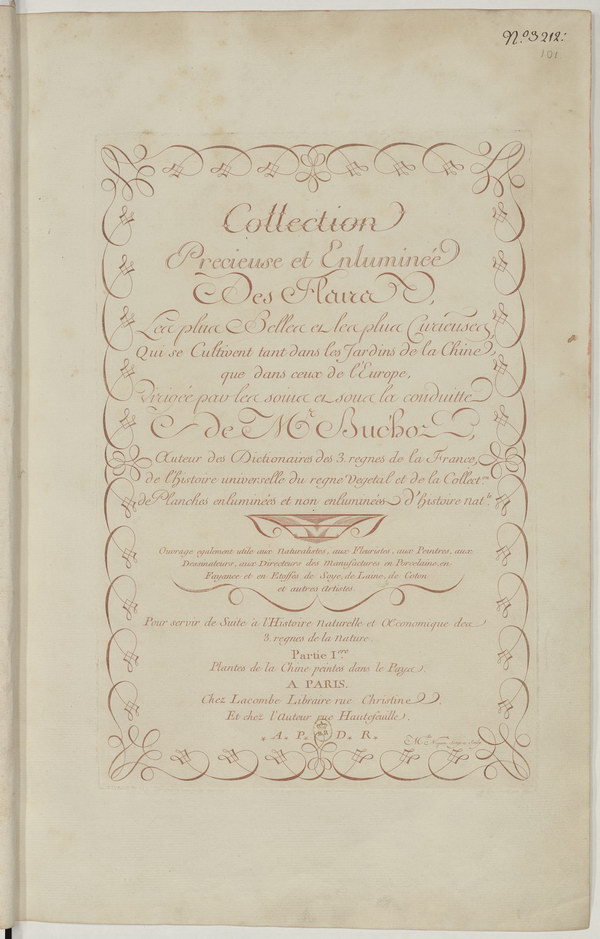 N.º 3212.
101
Collection
Precieuse et Enluminée
Des Fleurs,
Les plus Belles et les plus Curieuses
Qui se Cultivent tant dans les Jardins de la Chine,
que dans ceux de l'Europe,
Dirigée par les soins et sous la conduitte
de Mr Buc'hoz,
Auteur des Dictionaires des 3. regnes de la France,
de l'histoire universelle du regne Vegetal et de la Collect.on
de Planches enluminées et non enluminées d'histoire Nat.le
Ouvrage egalement utile aux Naturalistes, aux Fleuristes, aux Peintres, aux
Dessinateurs, aux Directeurs des Manufactures en Porcelaine, en
Fayance et en Etoffes de Soye, de Laine, de Coton
et autres Artistes.
Pour servir de Suite à l'Histoire Naturelle et Œconomique des
3 regnes de la Nature.
Partie I.ere
Plantes de la Chine peintes dans le Pays.
A PARIS.
Chez Lacombe Libraire rue Christine,
Et chez l'Auteur rue Hautefeuille,
A. P. D. R.